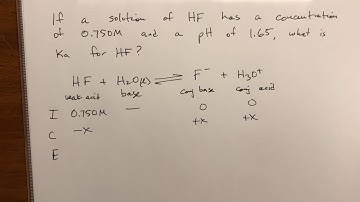 If a solution of HF has a concentration
of 0.750M and a pH of 1.65, what is
Ka for HF?
HF + H2O(l) ⇌ F⁻ + H3O⁺
weak acid base conj base conj acid
I 0.750M — 0 0
C -x +x +x
E